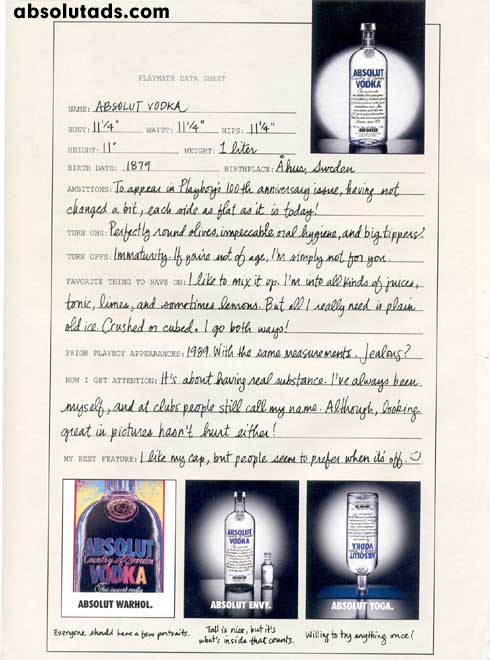 absolutads.com
ABSOLUT
Country of Sweden
VODKA
IMPORTED
PLAYMATE DATA SHEET
NAME: ABSOLUT VODKA
BUST: 11 1/4" WAIST: 11 1/4" HIPS: 11 1/4"
HEIGHT: 11" WEIGHT: 1 liter
BIRTH DATE: 1879 BIRTHPLACE: Åhus, Sweden
AMBITIONS: To appear in Playboy's 100th anniversary issue, having not
changed a bit, each side as flat as it is today!
TURN ONS: Perfectly round olives, impeccable oral hygiene, and big tippers!
TURN OFFS: Immaturity. If you're not of age, I'm simply not for you.
FAVORITE THING TO HAVE ON: I like to mix it up. I'm into all kinds of juices,
tonic, limes, and sometimes lemons. But all I really need is plain
old ice. Crushed or cubed, I go both ways!
PRIOR PLAYBOY APPEARANCES: 1989. With the same measurements. Jealous?
HOW I GET ATTENTION: It's about having real substance. I've always been
myself, and at clubs people still call my name. Although, looking
great in pictures hasn't hurt either!
MY BEST FEATURE: I like my cap, but people seem to prefer when it's off.
ABSOLUT
Country of Sweden
VODKA
ABSOLUT WARHOL.
Everyone should have a few portraits.
ABSOLUT
Country of Sweden
VODKA
ABSOLUT ENVY.
Tall is nice, but it's
what's inside that counts.
VODKA
Country of Sweden
ABSOLUT
ABSOLUT YOGA.
Willing to try anything once!